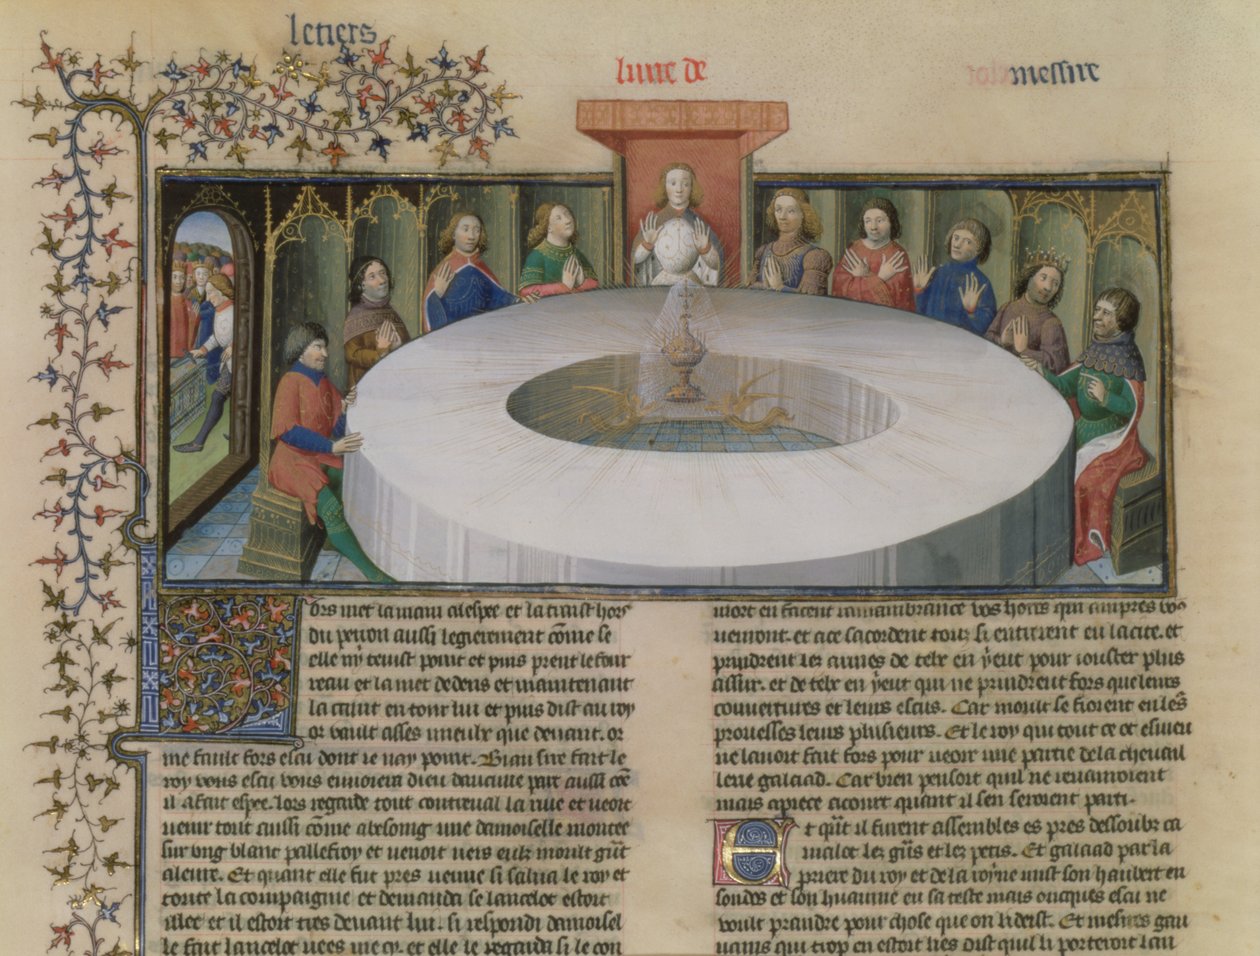 letiers
liure de
messire
Ors met la main a lespee et la traist hors
du perron aussi legierement cõme se
elle ny tenist point et puis prent le four
reau et la met dedens et maintenant
la ceint en tour lui et puis dist au roy
or vault asses mieulx que deuant. or
me fault fors escu dont ie nay point. Biau sire fait le
roy vous escu vous enuoiera dieu daucune part aussi cõe
il a fait espee. lors regarde tout contreual la riue et voit
venir tout aussi cõme abesoing une damoiselle montee
sur ung blanc pallefroy et venoit vers eulz moult grãt
aleure. Et quant elle fut pres venue si salua le roy et
toute la compaignie et demanda se lancelot estoit
illec et il estoit tres deuant lui. si respondi damoisel
le fait lancelot vees me cy. et elle le regarda si le con
mort en facent ramambrance vos hoirs qui empres vo9
vemont. et a ce sacordent touz si entrrent en la cite. et
prindrent lez armes de telx en y eut pour iouster plus
assur. et de telx en y eut qui ne prindrent fors que leurs
couuertures et leurs escus. Car moult se fioient en lrs
proesses leurs plusieurs. Et le roy qui tout ce ot esmeu
ne lauoit fait fors pour veoir une partie de la cheual
lerie galaad. Car bien pensoit quil ne reuanroient
mais a piece a court quant il sen seroient parti.
Et qũt il furent assembles es pres dessoubz ca
malot lez grãs et lez petis. Et galaad par la
priere du roy et de la royne mist son haubert en
son dos et son hiaume en sa teste mais oncques escu ne
voult prandre pour chose que on li deist. Et messires gau
uains qui trop en estoit lies dist quil li porteroit lan